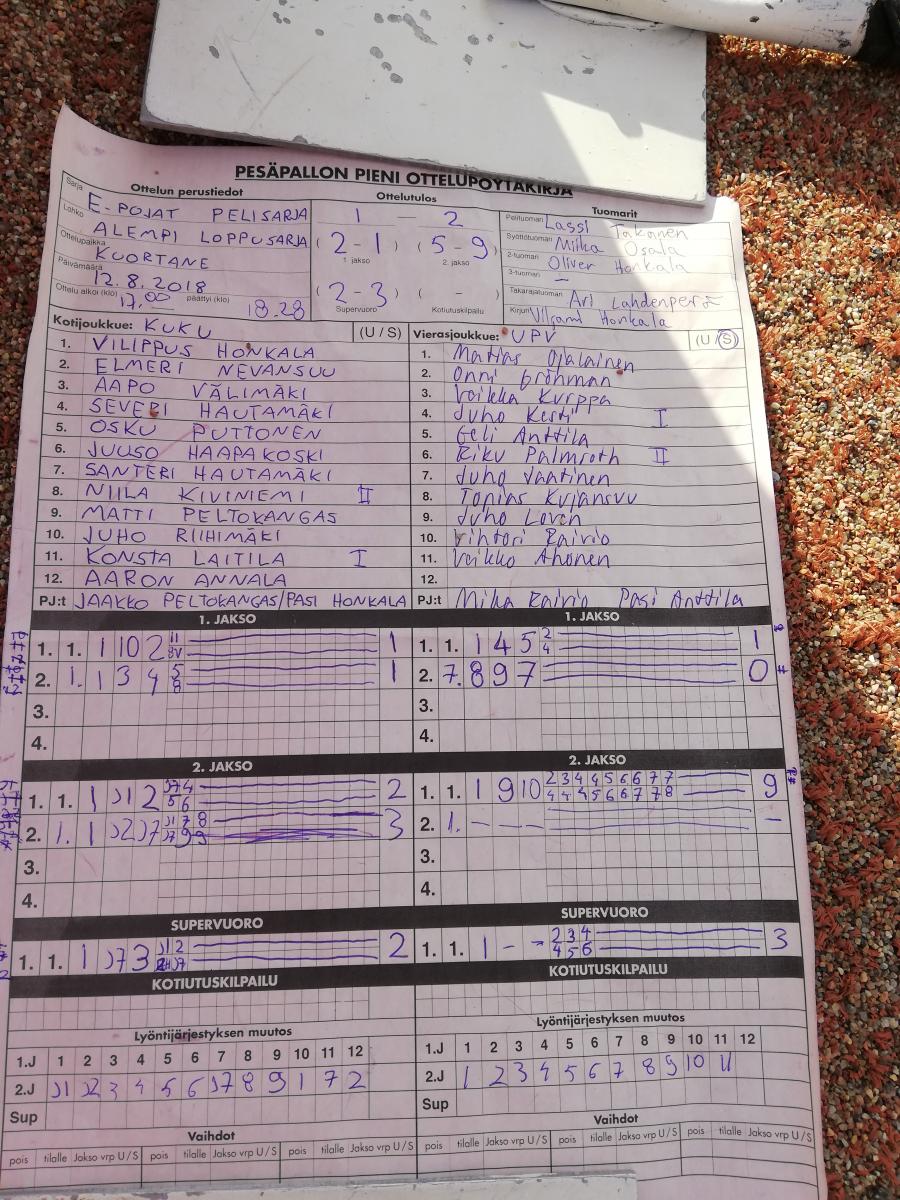 PESÄPALLON PIENI OTTELUPÖYTÄKIRJA
Ottelun perustiedot
Ottelutulos
Tuomarit
Sarja E-POJAT PELISARJA
Lohko ALEMPI LOPPUSARJA
Ottelupaikka KUORTANE
Päivämäärä 12.8.2018
Ottelu alkoi (klo) 17.00 päättyi (klo) 18.28
1 – 2
(2-1) (5-9)
1. jakso 2. jakso
(2-3) ( - )
Supervuoro Kotiutuskilpailu
Pelituomari Lassi Takanen
Syöttötuomari Miika Osala
2-tuomari Oliver Honkala
3-tuomari –
Takarajatuomari Ari Lahdenperä
Kirjuri Honkala
Kotijoukkue: KUKU (U / S)
1. VILIPPUS HONKALA
2. ELMERI NEVANSUU
3. AAPO VÄLIMÄKI
4. SEVERI HAUTAMÄKI
5. OSKU PUTTONEN
6. JUUSO HAAPAKOSKI
7. SANTERI HAUTAMÄKI
8. NIILA KIVINIEMI II
9. MATTI PELTOKANGAS
10. JUHO RIIHIMÄKI
11. KONSTA LAITILA I
12. AARON ANNALA
PJ:t JAAKKO PELTOKANGAS/PASI HONKALA
Vierasjoukkue: UPV (U / S)
1. Matias Ojalainen
2. Onni Gröhman
3. Veikka Kurppa
4. Juho Kesti I
5. Eeli Anttila
6. Riku Palmroth II
7. Juho Vantinen
8. Tomias Kujansuu
9. Juho Loven
10. Vihtori Rairio
11. Veikko Ahonen
12.
PJ:t Mika Rairio Pasi Anttila
1. JAKSO
1. 1. 1 10 2 1
2. 1. 1 3 4 5 8 1
3.
4.
1. JAKSO
1. 1. 1 4 5 2 4 1
2. 7. 8 9 7 0
3.
4.
2. JAKSO
1. 1. 1 J1 2 J7 4 5 6 2
2. 1. 1 J2 J7 3
3.
4.
2. JAKSO
1. 1. 1 9 10 2 3 4 4 5 6 6 7 7 9
4 4 4 5 6 6 7 7 8
2. 1. – – – –
3.
4.
SUPERVUORO
1. 1. 1 J7 3 J1 2 2
SUPERVUORO
1. 1. 1 – – 2 3 4 3
4 5 6
KOTIUTUSKILPAILU
KOTIUTUSKILPAILU
Lyöntijärjestyksen muutos
1.J 1 2 3 4 5 6 7 8 9 10 11 12
2.J J1 J2 3 4 5 6 J7 8 9 1 7 2
Sup
Lyöntijärjestyksen muutos
1.J 1 2 3 4 5 6 7 8 9 10 11 12
2.J 1 2 3 4 5 6 7 8 9 10 11
Sup
Vaihdot
pois tilalle Jakso vrp U / S pois tilalle Jakso vrp U / S pois tilalle Jakso vrp U / S
Vaihdot
pois tilalle Jakso vrp U / S pois tilalle Jakso vrp U / S pois tilalle Jakso vrp U / S